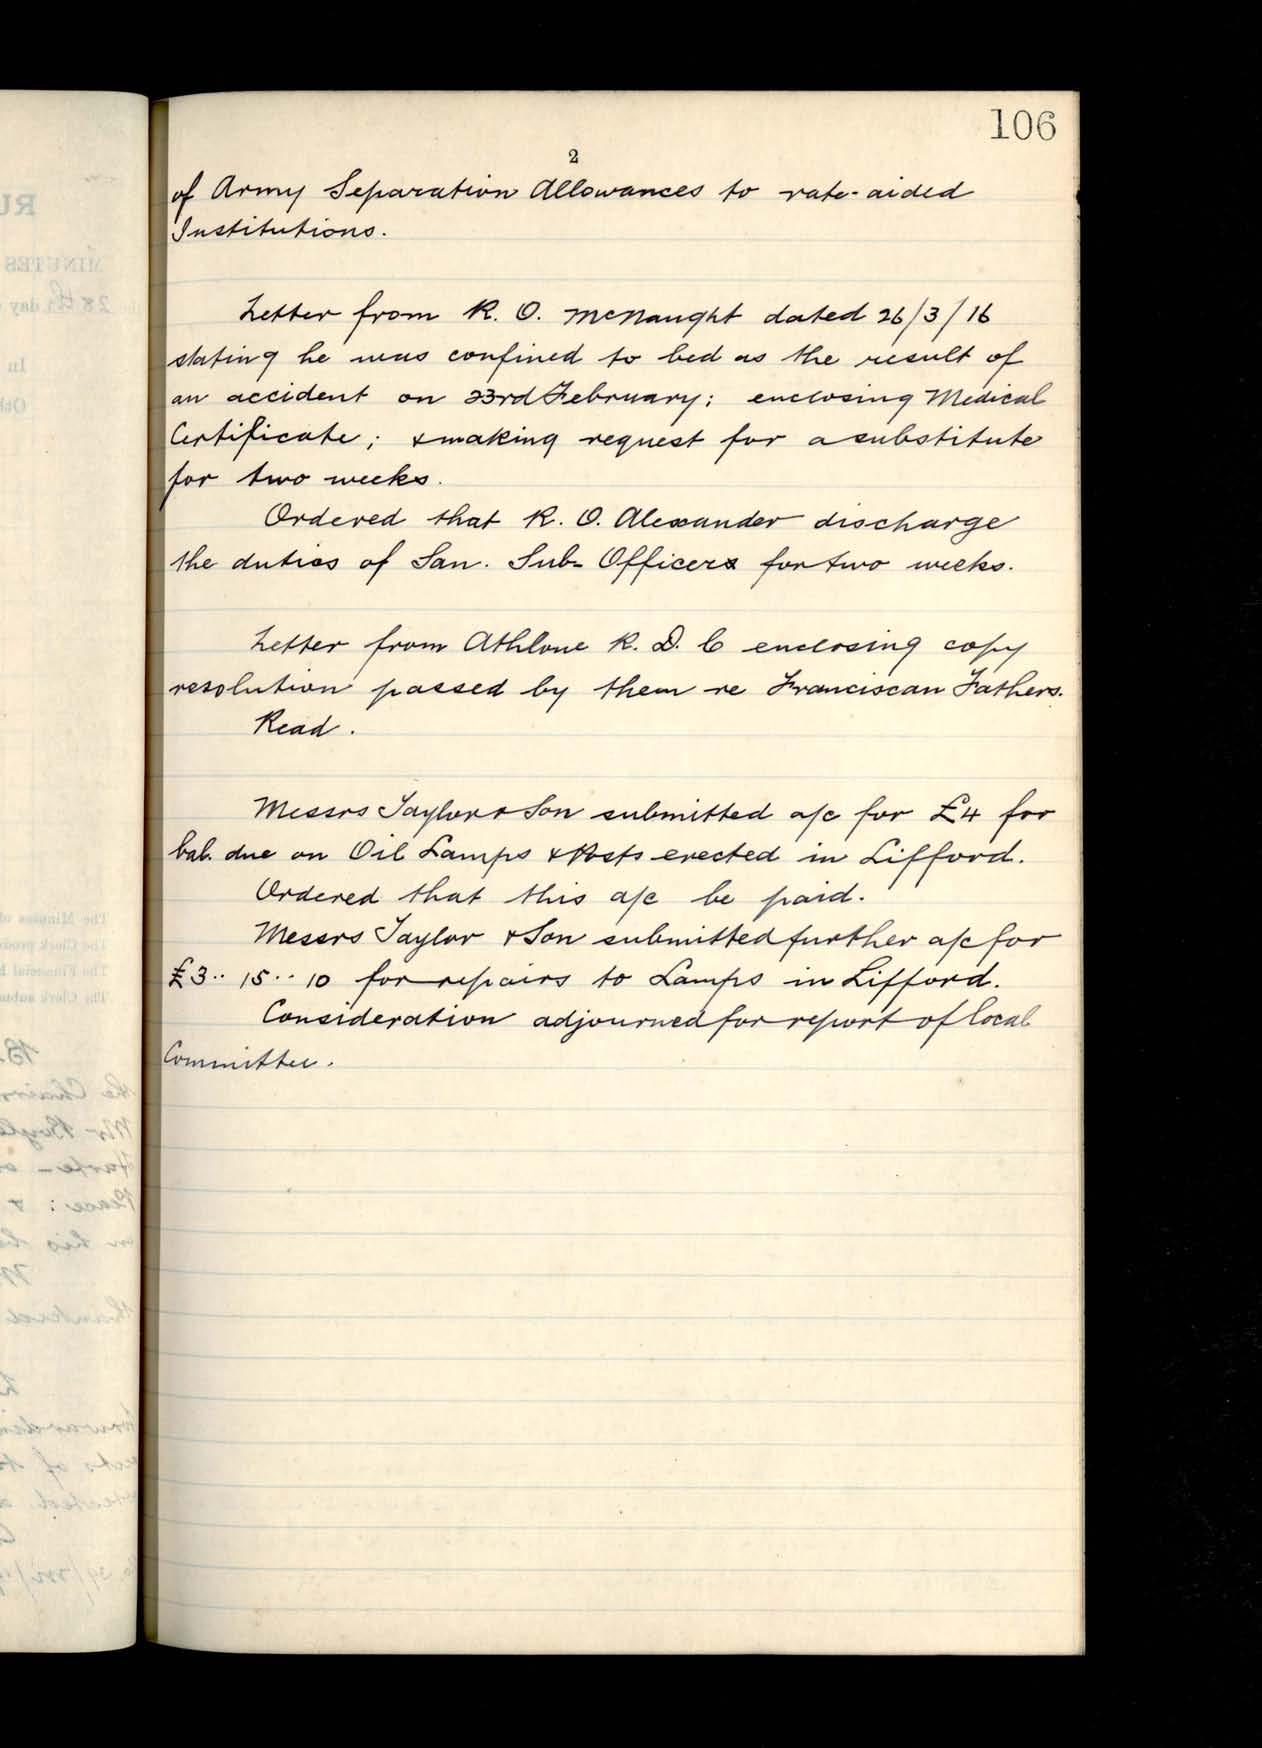 106
2
of Army Separation Allowances to rate-aided
Institutions.
Letter from R. O. McNaught dated 26/3/16
stating he was confined to bed as the result of
an accident on 23rd February; enclosing Medical
Certificate; & making request for a substitute
for two weeks.
Ordered that R. O. Alexander discharge
the duties of San. Sub-Officer for two weeks.
Letter from Athlone R. D. C enclosing copy
resolution passed by them re Franciscan Fathers.
Read.
Messrs Taylor & Son submitted a/c for £4 for
bal. due on Oil Lamps & Posts erected in Lifford.
Ordered that this a/c be paid.
Messrs Taylor & Son submitted further a/c for
£3.. 15.. 10 for repairs to Lamps in Lifford.
Consideration adjourned for report of local
Committee.
RU
MINUTES
28th day
In
Oth
The Minutes of
The Clerk prod
The Financial
The Clerk subm
the Chair
Mr Boyle
Peace: &
on his